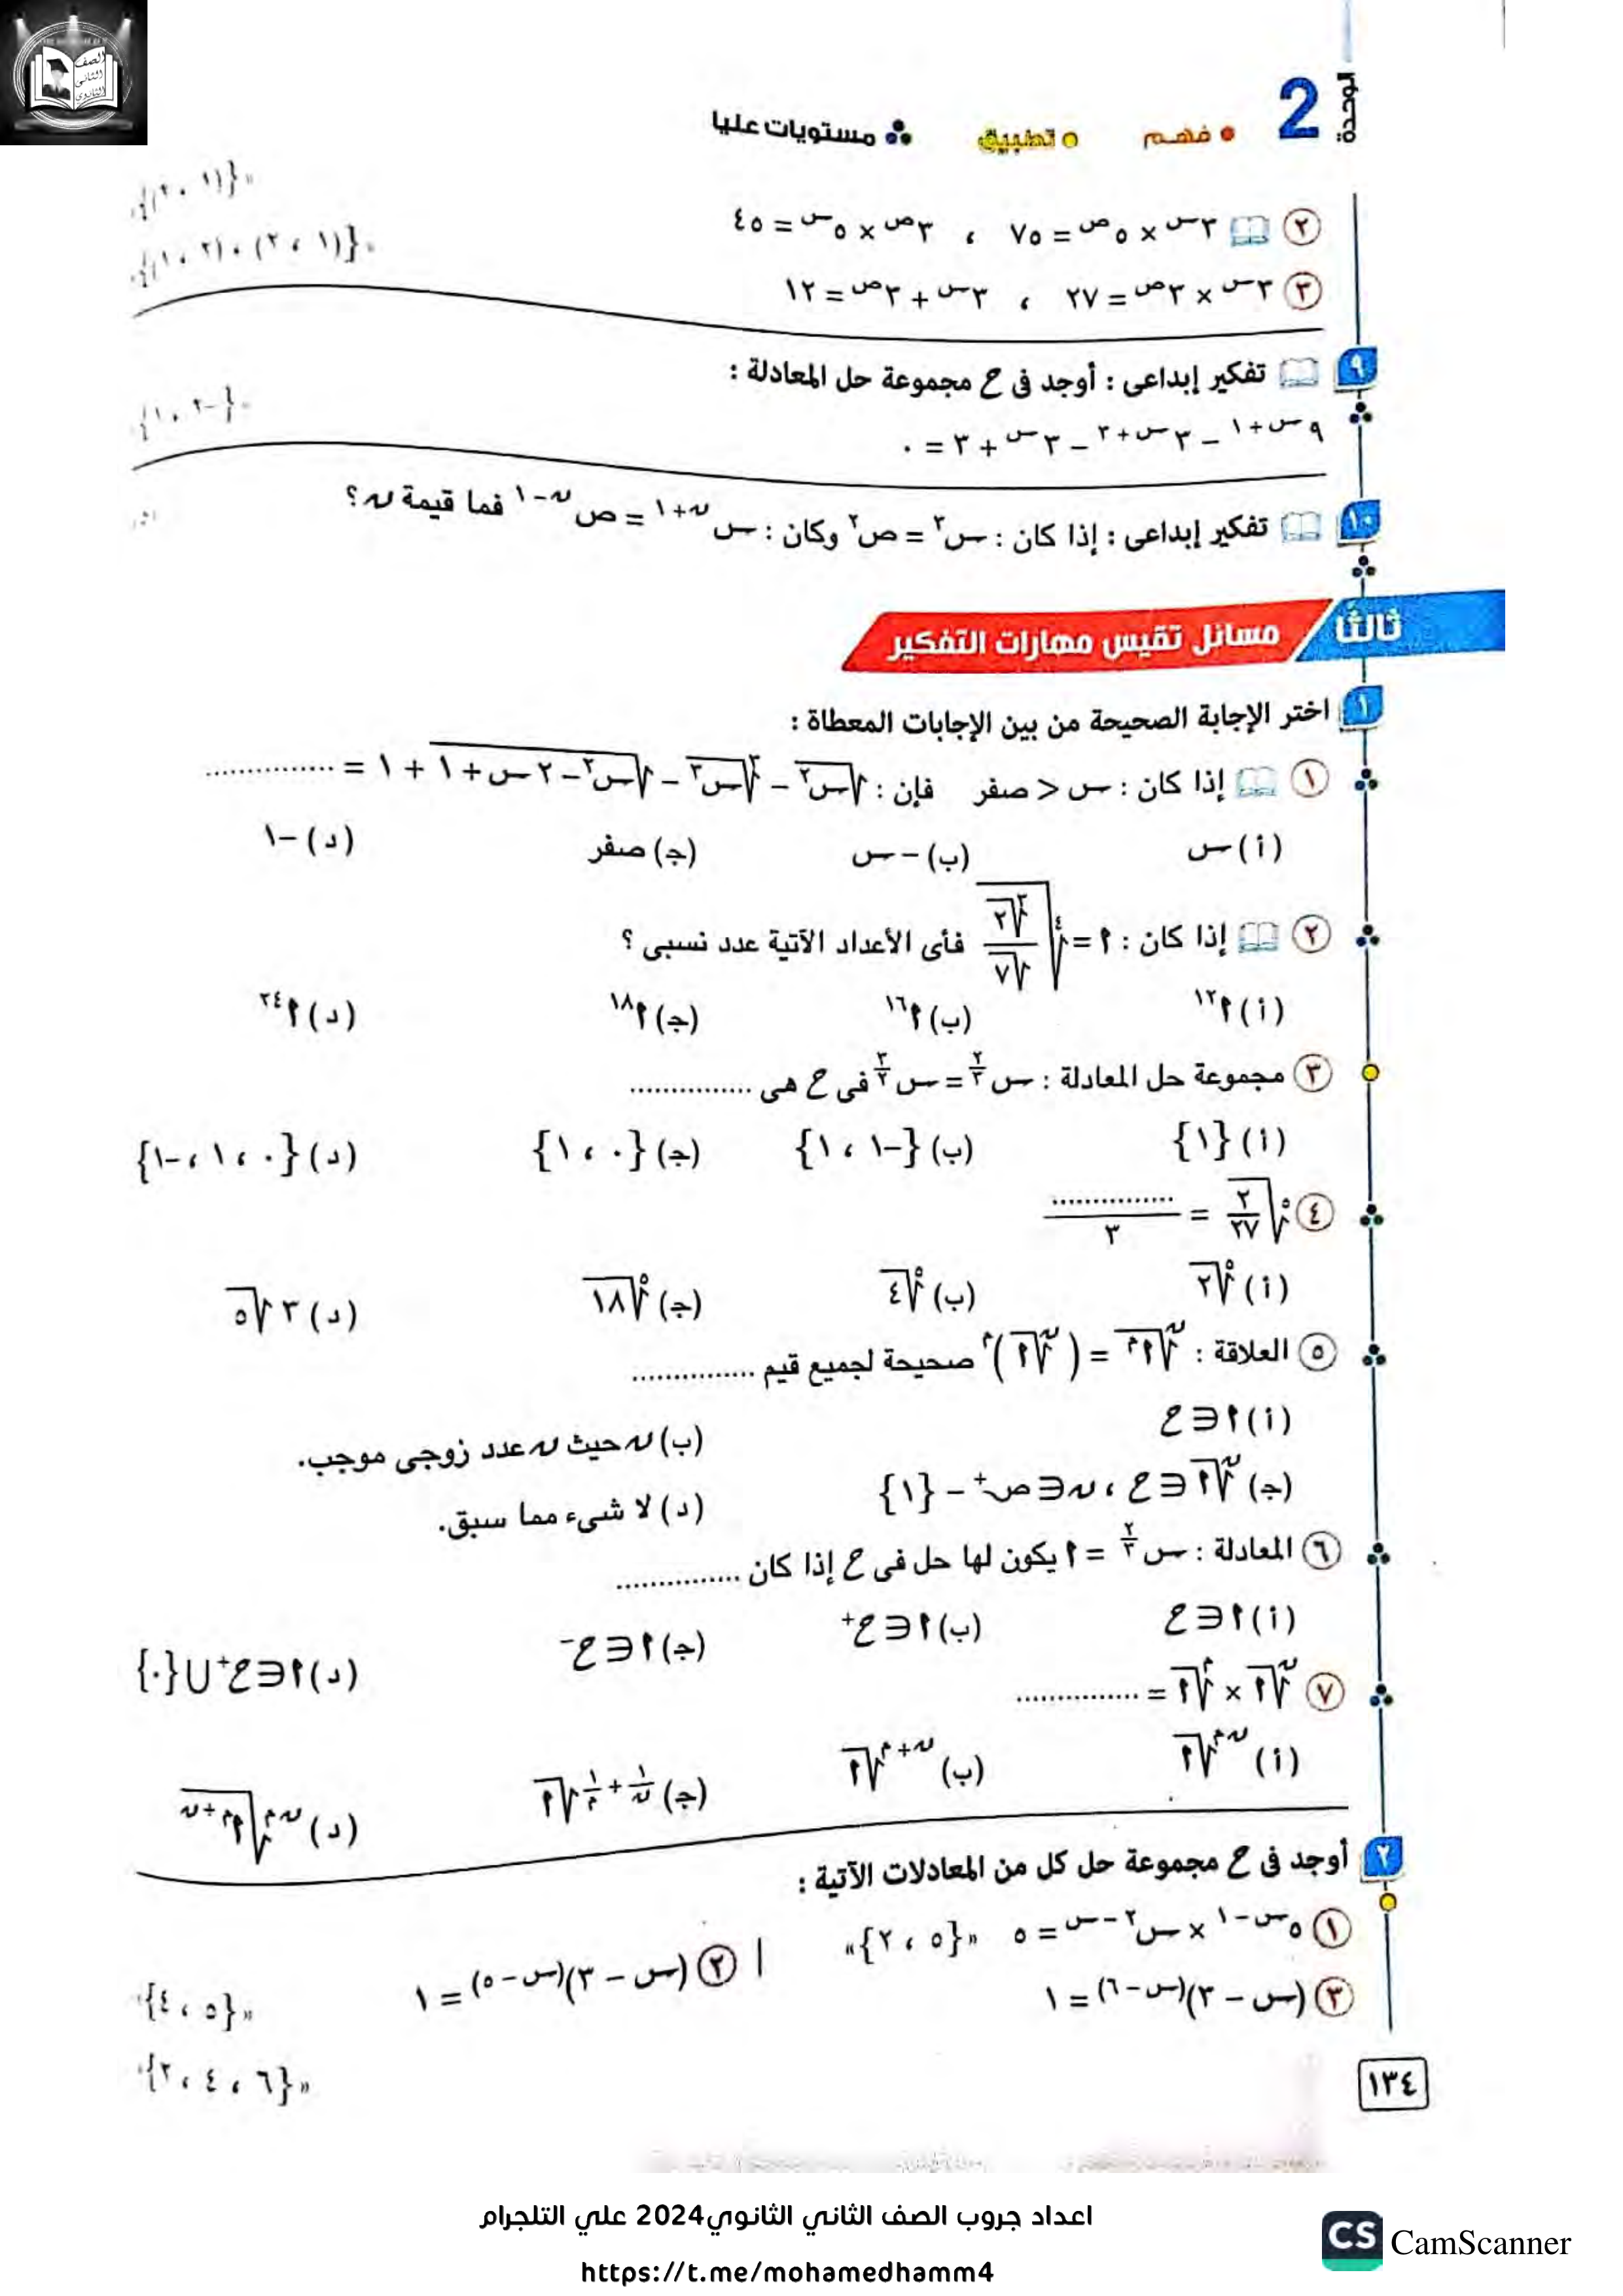 الصف
الثاني
الثانوي
الوحدة 2
• فهم • تطبيق ⁂ مستويات عليا
٢ ٣^س × ٥^ص = ٧٥ ، ٣^ص × ٥^س = ٤٥ «{(١ ، ٢)}»
٣ ٣^س × ٣^ص = ٢٧ ، ٣^س + ٣^ص = ١٢ «{(١ ، ٢) ، (٢ ، ١)}»
٩ تفكير إبداعى : أوجد فى ح مجموعة حل المعادلة :
٩^(س+١) − ٣^(س+٣) − ٣^س + ٣ = ٠ «{−٢ ، ١}»
١٠ تفكير إبداعى : إذا كان : س^٣ = ص^٢ وكان : س^(ن+١) = ص^(ن−١) فما قيمة ن؟ «٥»
ثالثًا مسائل تقيس مهارات التفكير
١ اختر الإجابة الصحيحة من بين الإجابات المعطاة :
١ إذا كان : س < صفر فإن : √(س^٢) − ∛(س^٣) − √(س^٢ − ٢ س + ١) + ١ = ...............
(أ) س (ب) − س (ج) صفر (د) −١
٢ إذا كان : ٢ = ∜(∛٢ / √٧) فأى الأعداد الآتية عدد نسبى ؟
(أ) ٢^١٢ (ب) ٢^١٦ (ج) ٢^١٨ (د) ٢^٢٤
٣ مجموعة حل المعادلة : س^(٢/٣) = س^(٣/٢) فى ح هى ...............
(أ) {١} (ب) {−١ ، ١} (ج) {٠ ، ١} (د) {٠ ، ١ ، −١}
٤ ⁵√(٢/٢٧) = ............... / ٣
(أ) ⁵√٢ (ب) ⁵√٤ (ج) ⁵√١٨ (د) ٣ √٥
٥ العلاقة : ⁿ√(٢^م) = (ⁿ√٢)^م صحيحة لجميع قيم ...............
(أ) ٢ ∈ ح (ب) ن حيث ن عدد زوجى موجب.
(ج) ⁿ√٢ ∈ ح ، ن ∈ ص⁺ − {١} (د) لا شىء مما سبق.
٦ المعادلة : س^(٢/٣) = ٢ يكون لها حل فى ح إذا كان ...............
(أ) ٢ ∈ ح (ب) ٢ ∈ ح⁺ (ج) ٢ ∈ ح⁻ (د) ٢ ∈ ح⁺ ∪ {٠}
٧ ⁿ√٢ × ᵐ√٢ = ...............
(أ) ⁿᵐ√٢ (ب) ⁿ⁺ᵐ√٢ (ج) (١/ن + ١/م)√٢ (د) ⁿᵐ√(٢^(م+ن))
٢ أوجد فى ح مجموعة حل كل من المعادلات الآتية :
١ ٥^(س−١) × س^(٢−س) = ٥ «{٥ ، ٢}» | ٢ (س − ٣)^(س−٥) = ١ «{٥ ، ٤}»
٣ (س − ٣)^(س−٦) = ١ «{٦ ، ٤ ، ٢}»
١٣٤
اعداد جروب الصف الثاني الثانوي2024 علي التلجرام
https://t.me/mohamedhamm4
CS CamScanner